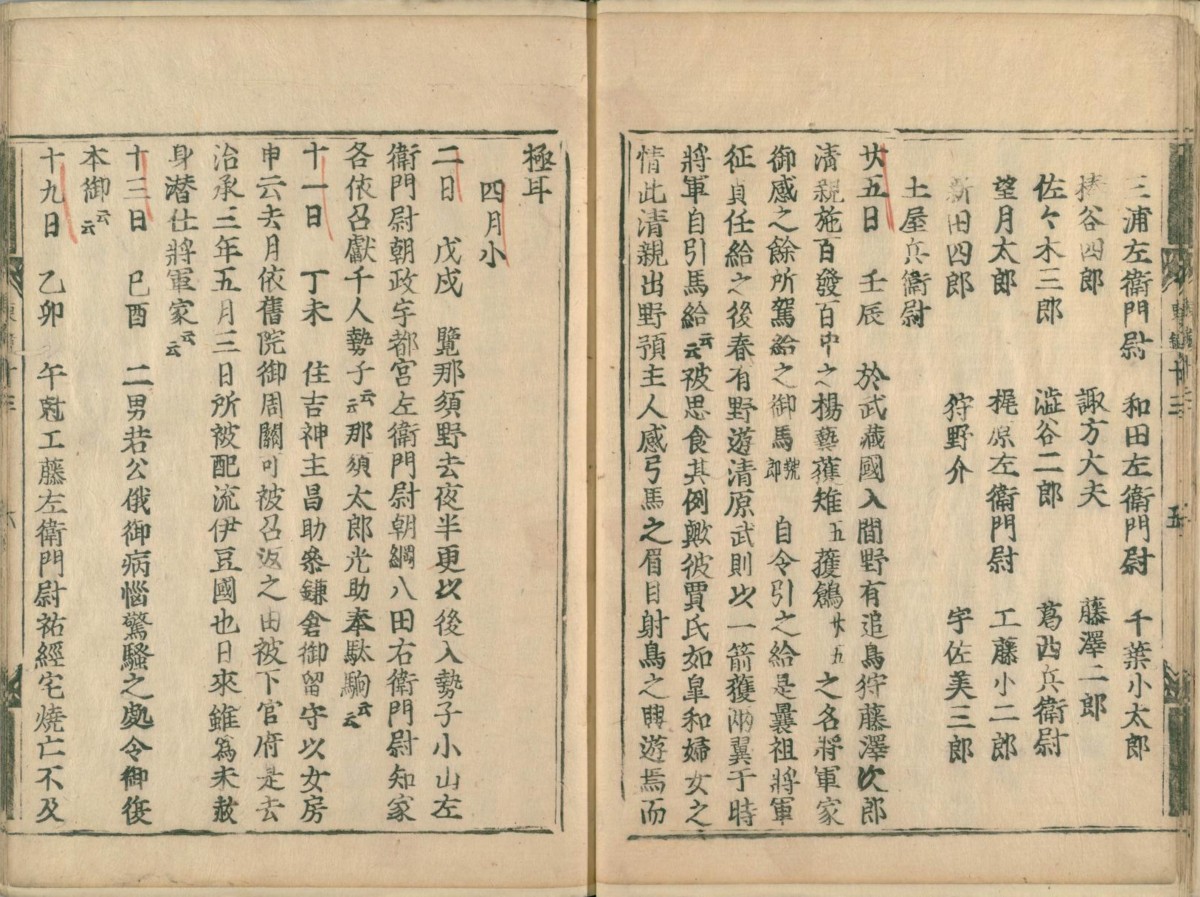 三浦左衛門尉 和田左衛門尉 千葉小太郎
榛谷四郎 諏方大夫 藤澤二郎
佐々木三郎 澁谷二郎 葛西兵衛尉
望月太郎 梶原左衛門尉 工藤小二郎
新田四郎 狩野介 宇佐美三郎
土屋兵衛尉
廿五日 壬辰 於武藏國入間野有追鳥狩藤澤次郎
清親施百發百中之楊藝獲雉五獲鶬廿五之名將軍家
御感之餘所駕給之御馬號郎自令引之給是曩祖將軍
征貞任給之後春有野遊清原武則以一箭獲兩翼于時
將軍自引馬給云云被思食其例歟彼賈氏如皐和婦女之
情此清親出野預主人感弓馬之眉目射鳥之興遊焉而
極耳
四月小
二日 戊戌 覽那須野去夜半更以後入勢子小山左
衛門尉朝政宇都宮左衛門尉朝綱八田右衛門尉知家
各依召獻千人勢子云云那須太郎光助奉駄駒云云
十一日 丁未 住吉神主昌助參鎌倉御留守以女房
申云去月依舊院御周闋可被召返之由被下官府是去
治承三年五月三日所被配流伊豆國也日來雖爲未赦
身潛仕將軍家云云
十三日 巳酉 二男若公俄御病惱驚騷之處令御復
本御云云
十九日 乙卯 午尅工藤左衛門尉祐經宅燒亡不及